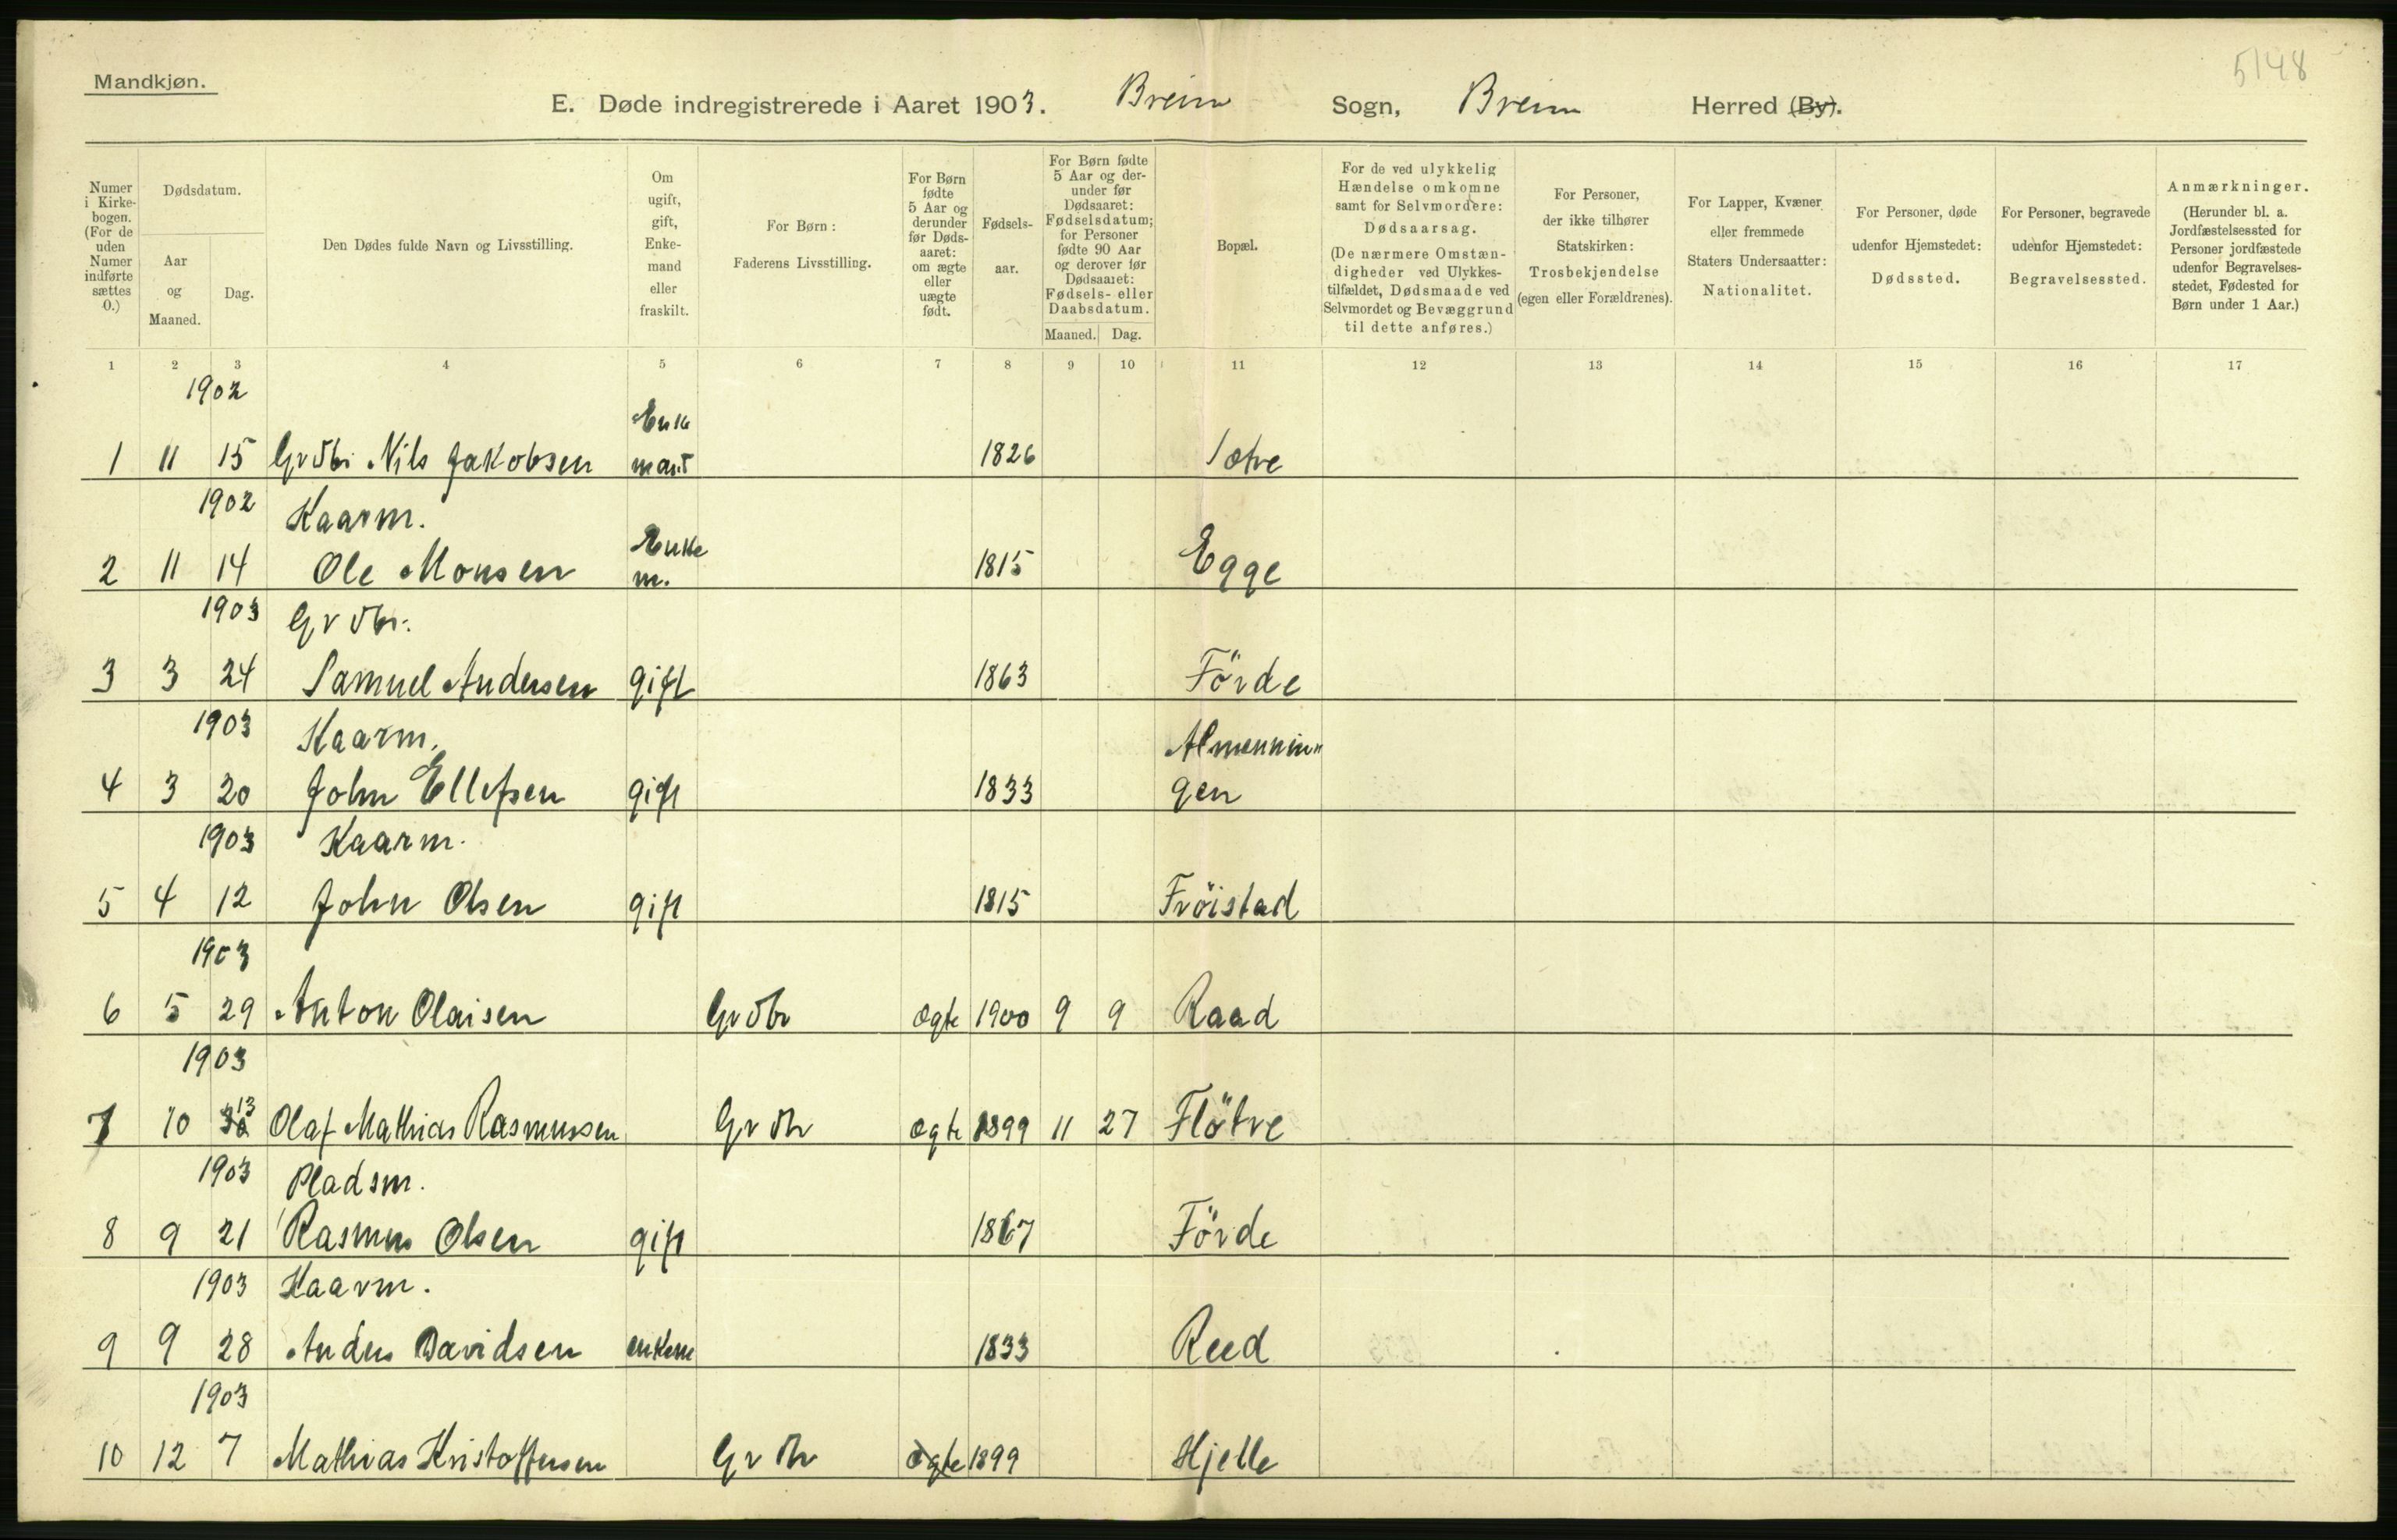 5148
Mandkjøn.
E. Døde indregistrerede i Aaret 1903. Breim Sogn, Breim Herred (By).
Numer i Kirkebogen. (For de uden Numer indførte sættes 0.)
Dødsdatum.
Aar og Maaned.
Dag.
Den Dødes fulde Navn og Livsstilling.
Om ugift, gift, Enkemand eller fraskilt.
For Børn: Faderens Livsstilling.
For Børn fødte 5 Aar og derunder før Dødsaaret: om ægte eller uægte født.
Fødselsaar.
For Børn fødte 5 Aar og derunder før Dødsaaret: Fødselsdatum; for Personer fødte 90 Aar og derover før Dødsaaret: Fødsels- eller Daabsdatum.
Maaned. Dag.
Bopæl.
For de ved ulykkelig Hændelse omkomne samt for Selvmordere: Dødsaarsag. (De nærmere Omstændigheder ved Ulykkestilfældet, Dødsmaade ved Selvmordet og Bevæggrund til dette anføres.)
For Personer, der ikke tilhører Statskirken: Trosbekjendelse (egen eller Forældrenes).
For Lapper, Kvæner eller fremmede Staters Undersaatter: Nationalitet.
For Personer, døde udenfor Hjemstedet: Dødssted.
For Personer, begravede udenfor Hjemstedet: Begravelsessted.
Anmærkninger. (Herunder bl. a. Jordfæstelsessted for Personer jordfæstede udenfor Begravelsesstedet, Fødested for Børn under 1 Aar.)
1 2 3 4 5 6 7 8 9 10 11 12 13 14 15 16 17
1902 Enke
1 11 15 Grdbr Nils Jakobsen mand 1826
1902 Kaarm. Enke
2 11 14 Ole Monsen m. 1815 Egge
1903 Grdbr.
3 3 24 Samuel Andersen gift 1863 Förde
1903 Kaarm. Almennin"
4 3 20 John Ellefsen gift 1833 gen
1903 Kaarm.
5 4 12 John Olsen gift 1815 Fröistad
1903
6 5 29 Anton Olaisen Grdbr ægte 1900 9 9 Raad
1903
7 10 13 Olaf Mathias Rasmussen Grdbr ægte 1899 11 27 Flötre
1903 Pladsm.
8 9 21 Rasmus Olsen gift 1867 Förde
1903 Kaarm.
9 9 28 Anders Davidsen enkem 1833 Reed
1903
10 12 7 Mathias Kristoffersen Grdbr ægte 1899 Hjelle